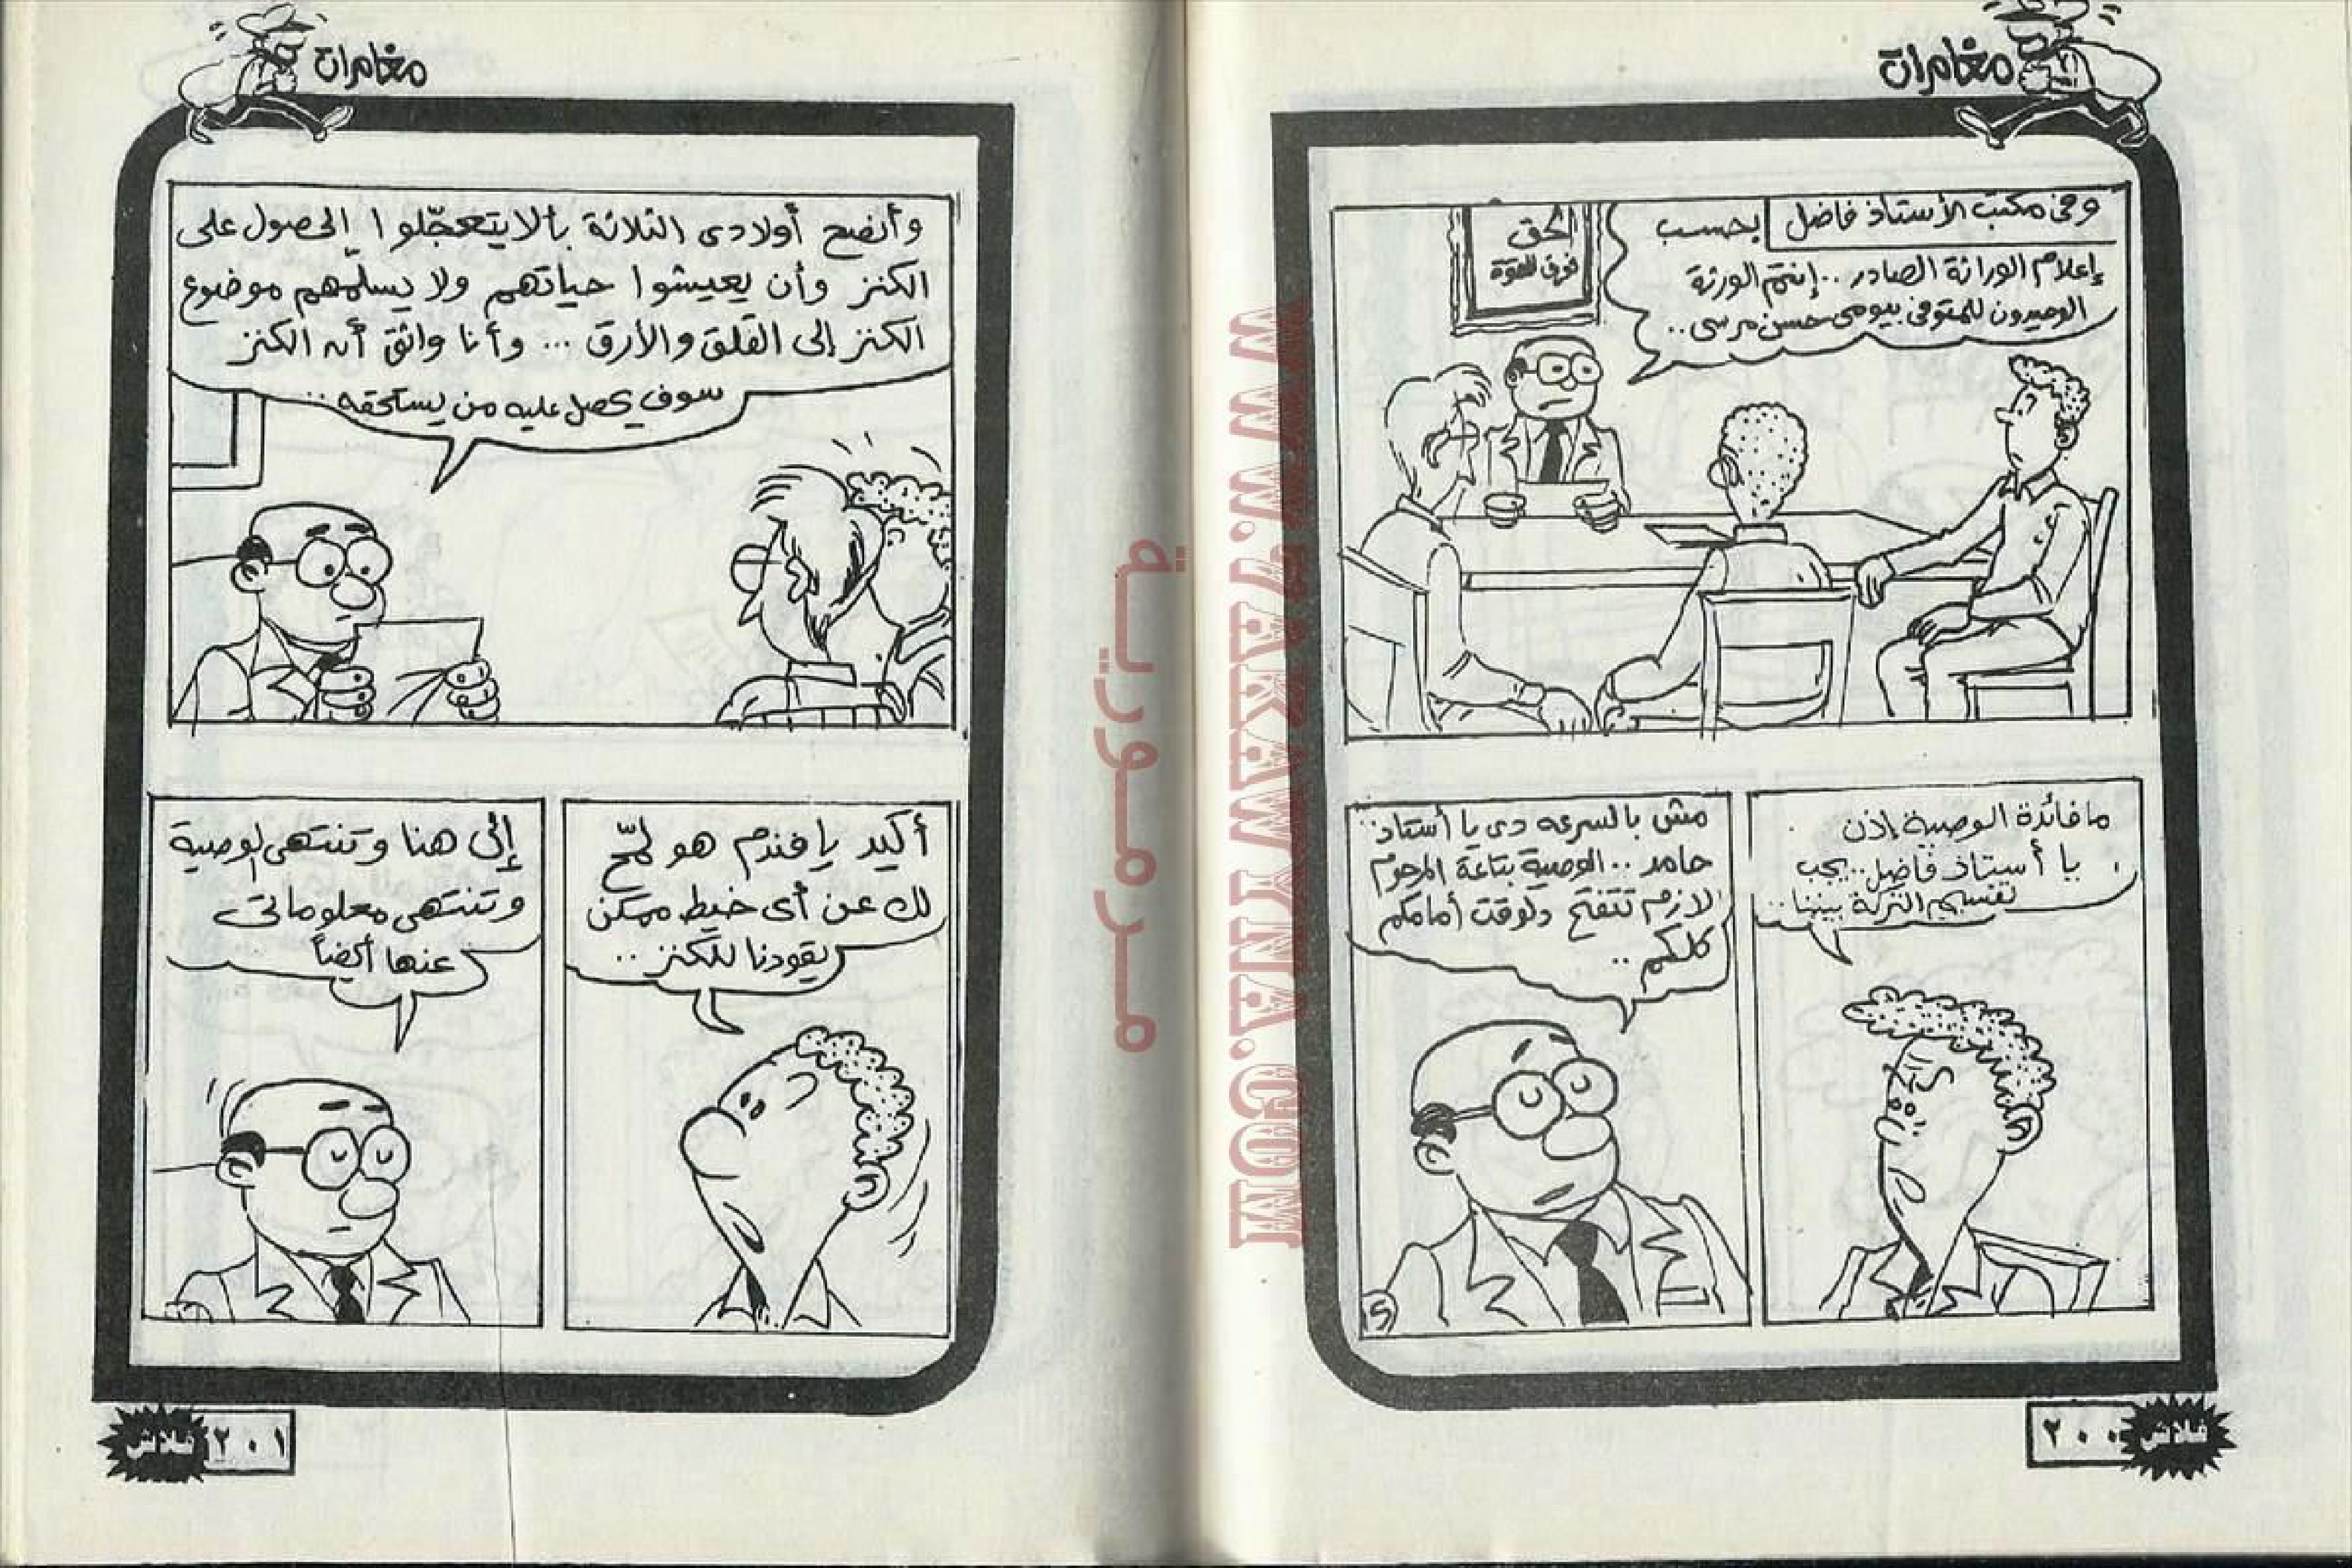 مغامرات
وفى مكتب الأستاذ فاضل
بحسب
إعلام الوراثة الصادر .. إنتم الورثة
الوحيدون للمتوفى بيومى حسن مرسى ..
الحق
فوق القوة
ما فائدة الوصية إذن
يا أستاذ فاضل .. يجب
تقسيم التركة بيننا ..
مش بالسرعه دى يا أستاذ
حامد .. الوصية بتاعة المرحوم
لازم تتفتح دلوقت أمامكم
كلكم ..
5
٢٠٠
فلاش
مغامرات
وأنصح أولادى الثلاثة بألا يتعجّلوا إلحصول على
الكنز وأن يعيشوا حياتهم ولا يسلمهم موضوع
الكنز إلى القلق والأرق ... وأنا واثق أن الكنز
سوف يحصل عليه من يستحقه ..
أكيد يا فندم هو لمّح
لك عن أى خيط ممكن
يقودنا للكنز ..
إلى هنا وتنتهى الوصية
وتنتهى معلوماتى
عنها أيضاً
٢٠١
فلاش
مرمورية
WWW.VAKAWKNA.COM